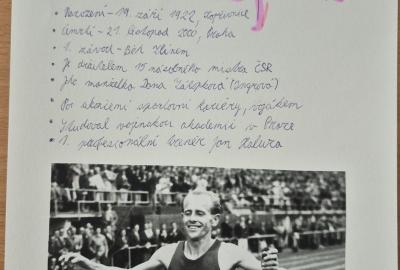 • Narození – 19. září 1922, Kopřivnice
• Úmrtí – 21. listopad 2000, Praha
• 1. závod – Běh Zlínem
• Je držitelem 15 násobného mistra ČSR
• Jeho manželka Dana Zátopková (Ingrová)
• Po skončení sportovní kariéry, vojákem
• Studoval vojenskou akademii v Praze
• 1. profesionální trenér Jan Haluza